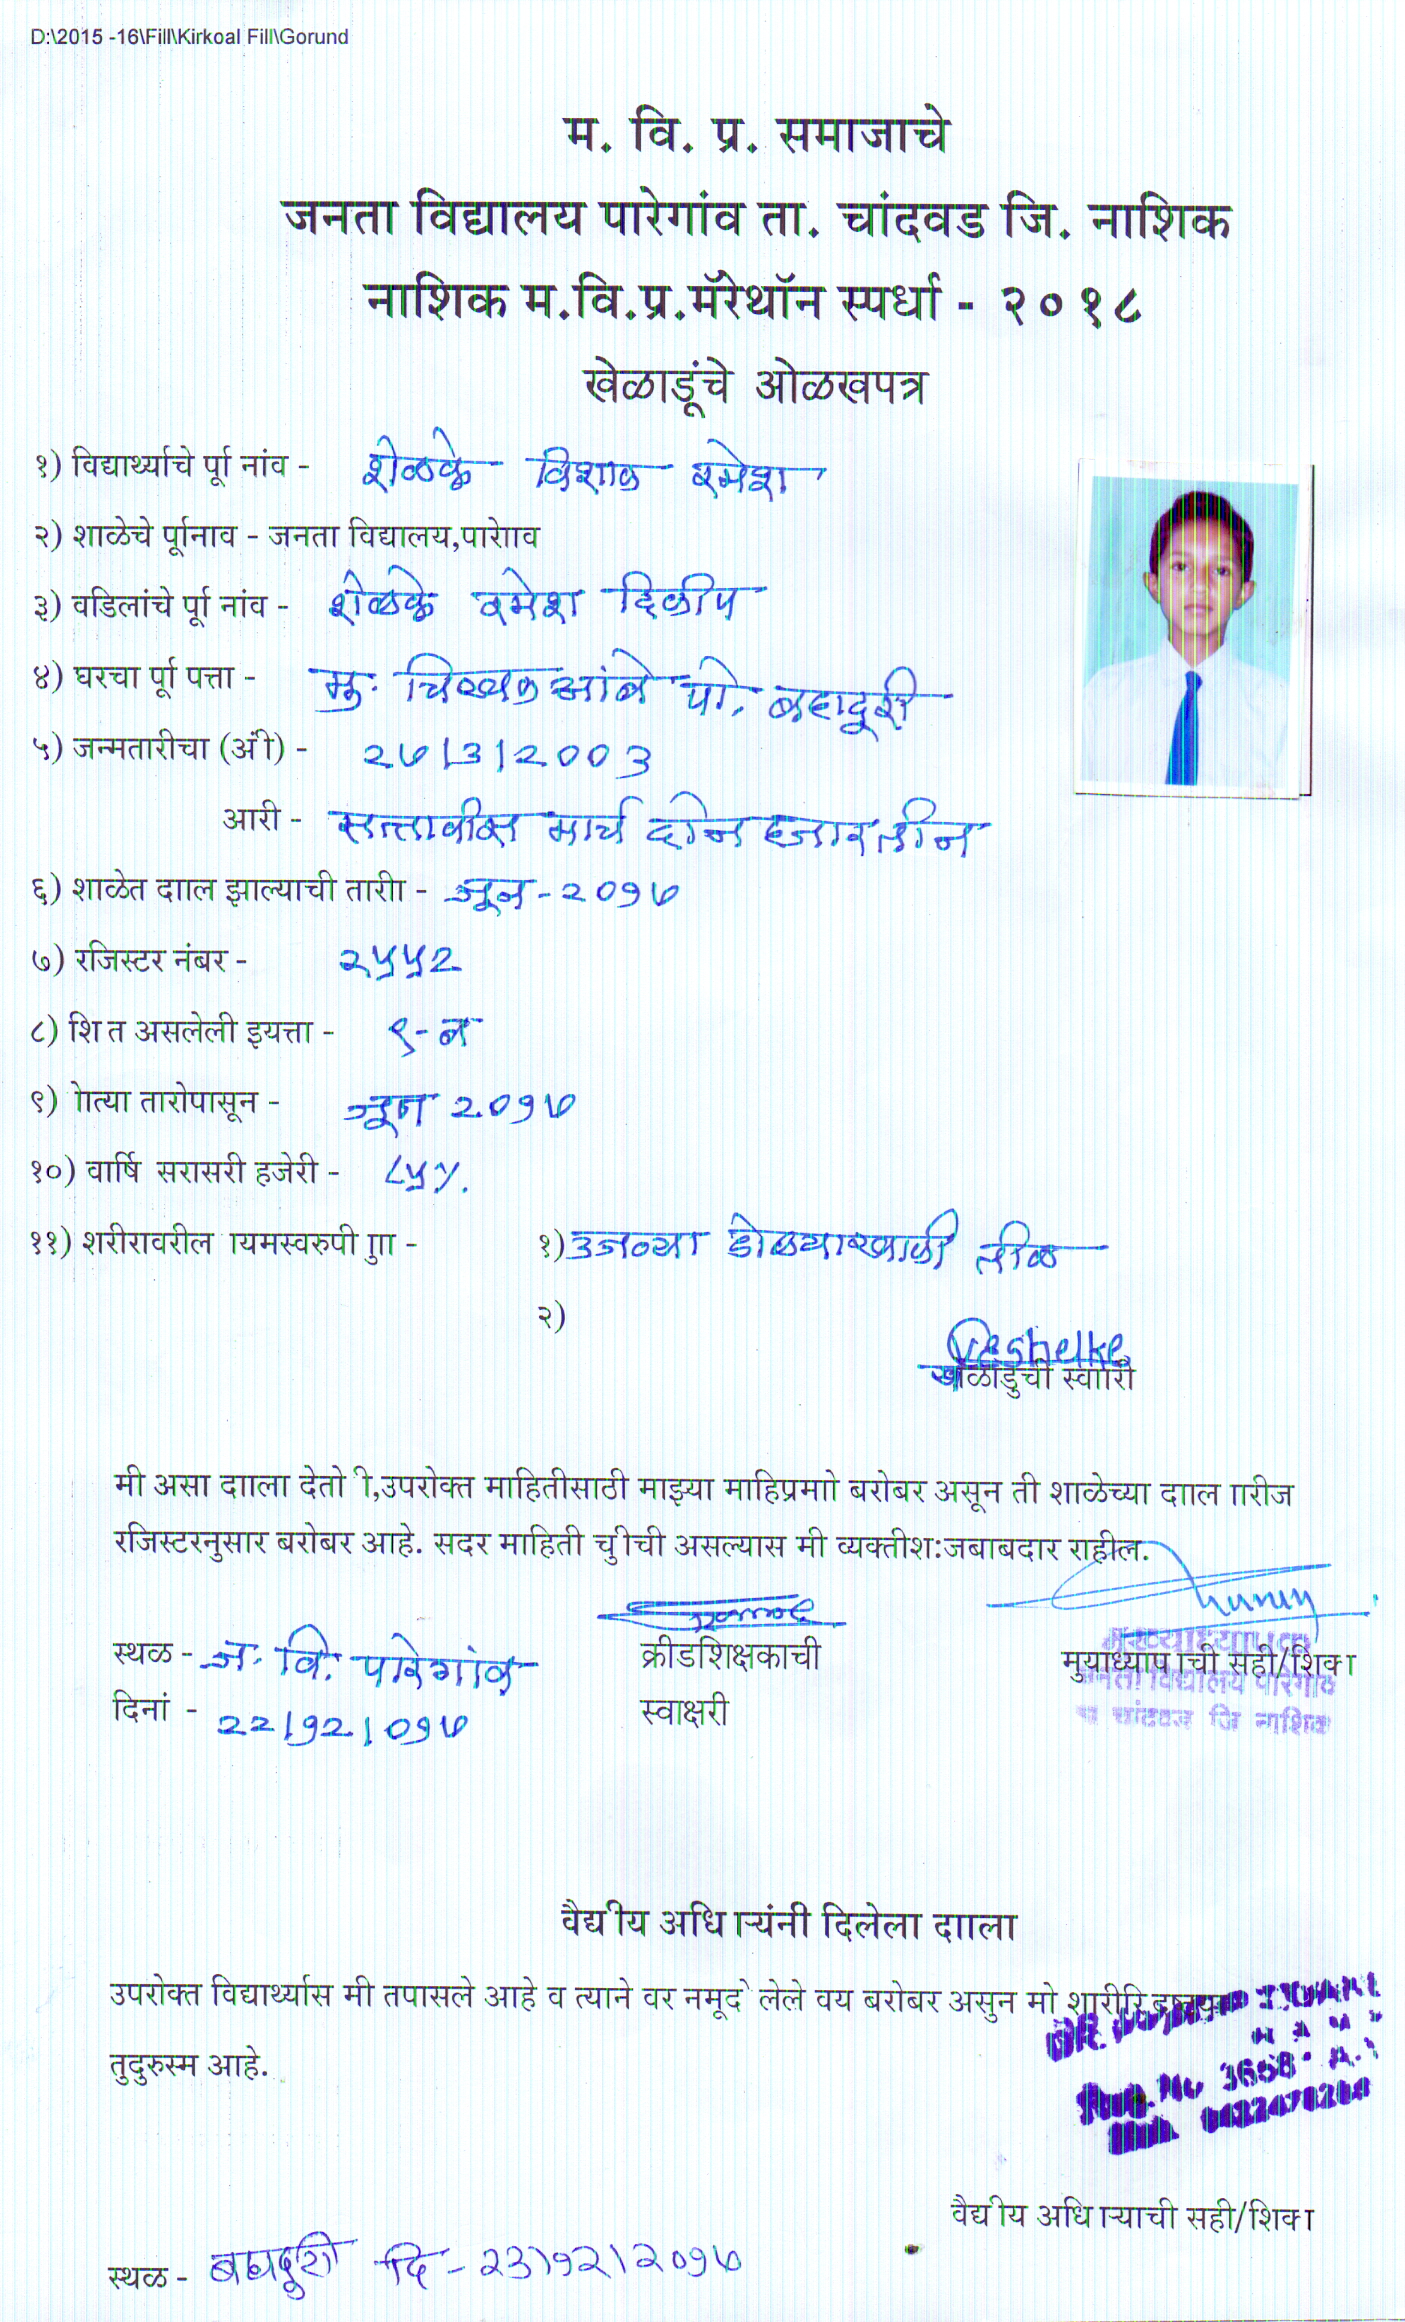 D:\2015 -16\Fill\Kirkoal Fill\Gorund
म. वि. प्र. समाजाचे
जनता विद्यालय पारेगांव ता. चांदवड जि. नाशिक
नाशिक म.वि.प्र.मॅरेथॉन स्पर्धा - २०१८
खेळाडूंचे ओळखपत्र
१) विद्यार्थ्याचे पूर्ा नांव - शेळके विशाल रमेश
२) शाळेचे पूर्ानाव - जनता विद्यालय,पारेाव
३) वडिलांचे पूर्ा नांव - शेळके रमेश दिलीप
४) घरचा पूर्ा पत्ता - मु. पो. बहादूरी
५) जन्मतारीचा (अंी) - २७/३/२००३
आरी - सत्तावीस मार्च दोन हजार तीन
६) शाळेत दााल झाल्याची तारीा - जून - २०१७
७) रजिस्टर नंबर - २५५२
८) शि त असलेली इयत्ता - ९-ब
९) ोत्या तारोपासून - जून २०१७
१०) वार्षि सरासरी हजेरी - ८५%
११) शरीरावरील ायमस्वरुपी ुा - १) उजव्या डोळ्याखाली तीळ
२)
shelke
खेळाडुची स्वाारी
मी असा दााला देतो ी,उपरोक्त माहितीसाठी माझ्या माहिप्रमाो बरोबर असून ती शाळेच्या दााल ाारीज
रजिस्टरनुसार बरोबर आहे. सदर माहिती चुीची असल्यास मी व्यक्तीश:जबाबदार राहील.
स्थळ - ज. वि. पारेगांव क्रीडशिक्षकाची मुयाध्याप ाची सही/शिक्का
दिनां - २२/१२/०१७ स्वाक्षरी
मुख्याध्यापक
जनता विद्यालय पारेगांव
चांदवड जि नाशिक
वैद्यीय अधि ार्‍यंनी दिलेला दााला
उपरोक्त विद्यार्थ्यास मी तपासले आहे व त्याने वर नमूद ेलेले वय बरोबर असुन मो शारीरि
तुदुरुस्म आहे.
DR.
Reg. No 3658
वैद्यीय अधि ार्‍याची सही/शिक्का
स्थळ - बहादूरी दि - २३/१२/२०१७